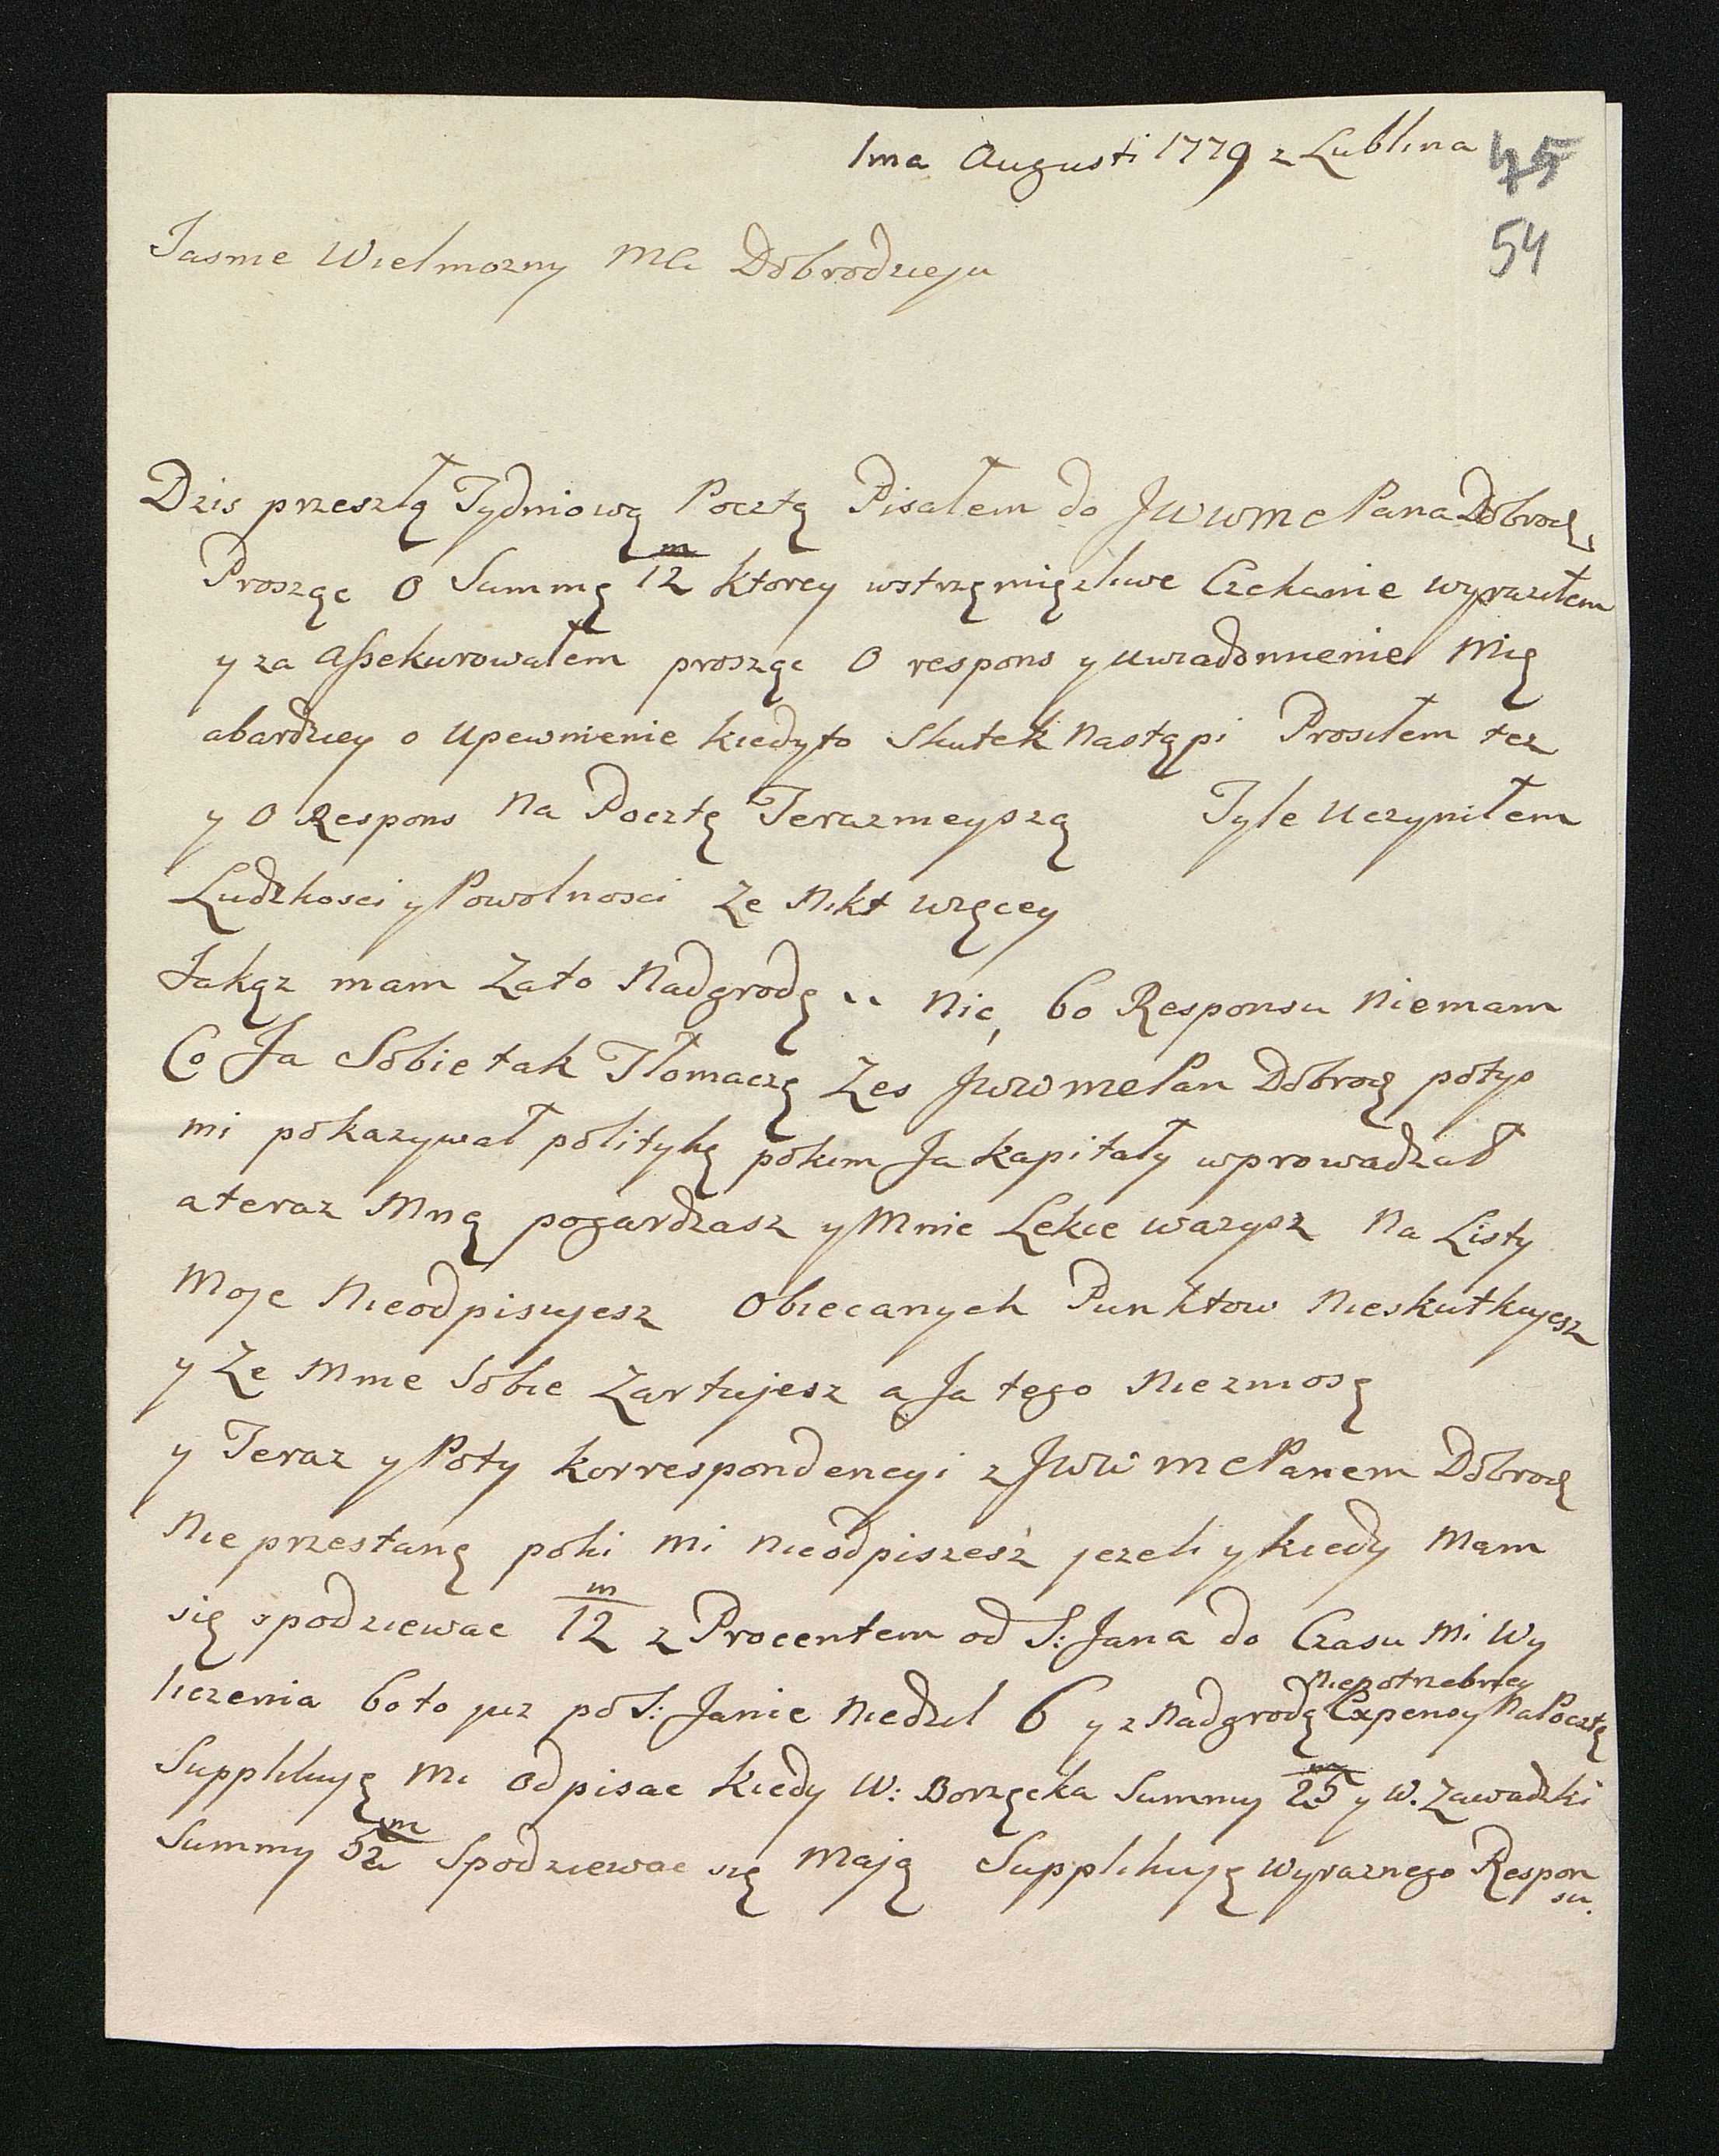 1ma Augusti 1779 z Lublina
45
54
Jasnie Wielmozny Mci Dobrodzieju
Dzis przeszłą Tydniową Pocztą Pisałem do JWWmcPana Dobrodz,
Prosząc o Summę 12/m ktorey wstrzęmięzliwe Czekanie wyraziłem
y za assekurowałem prosząc o respons y uwiadomienie Mię
abardziey o Upewnienie kiedyto Skutek Nastąpi Prosiłem tez
y o Respons Na Pocztę Teraznieyszą Tyle Uczyniłem
Ludzkosci y Powolnosci Ze Nikt więcey
Jakąz mam Zato Nadgrodę .. Nic, bo Responsu Niemam
Co Ja Sobie tak Tłomaczę Zes JWWmcPan Dobrodz potys
mi pokazywał politykę pokim Ja kapitały wprowadzał
ateraz Mną pogardzasz y Mnie Lekce wazysz Na Listy
Moje Nieodpisujesz Obiecanych Punktow Nieskutkujesz
y Ze Mnie Sobie Zartujesz a Ja tego Nieznosę
y Teraz y Poty korrespondencyi z JWWmcPanem Dobrodz
Nie przestanę poki mi Nieodpiszesz jezeli y kiedy Mam
się spodziewac 12/m z Procentem od S: Jana do Czasu Mi Wy
liczenia bo to juz po S: Janie Niedziel 6 y z Nadgrodą Niepotrzebney Expensy NaPocztę
Supplikuję Mi Odpisac kiedy W: Borzęcka Summy 25/m y W. Zawadzki
Summy 52/m Spodziewac się Mają Supplikuję Wyraznego Respon
su.